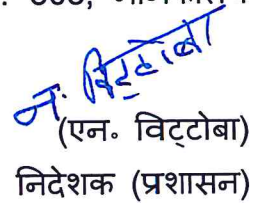 न. विट्टोबा
(एन॰ विट्टोबा)
निदेशक (प्रशासन)